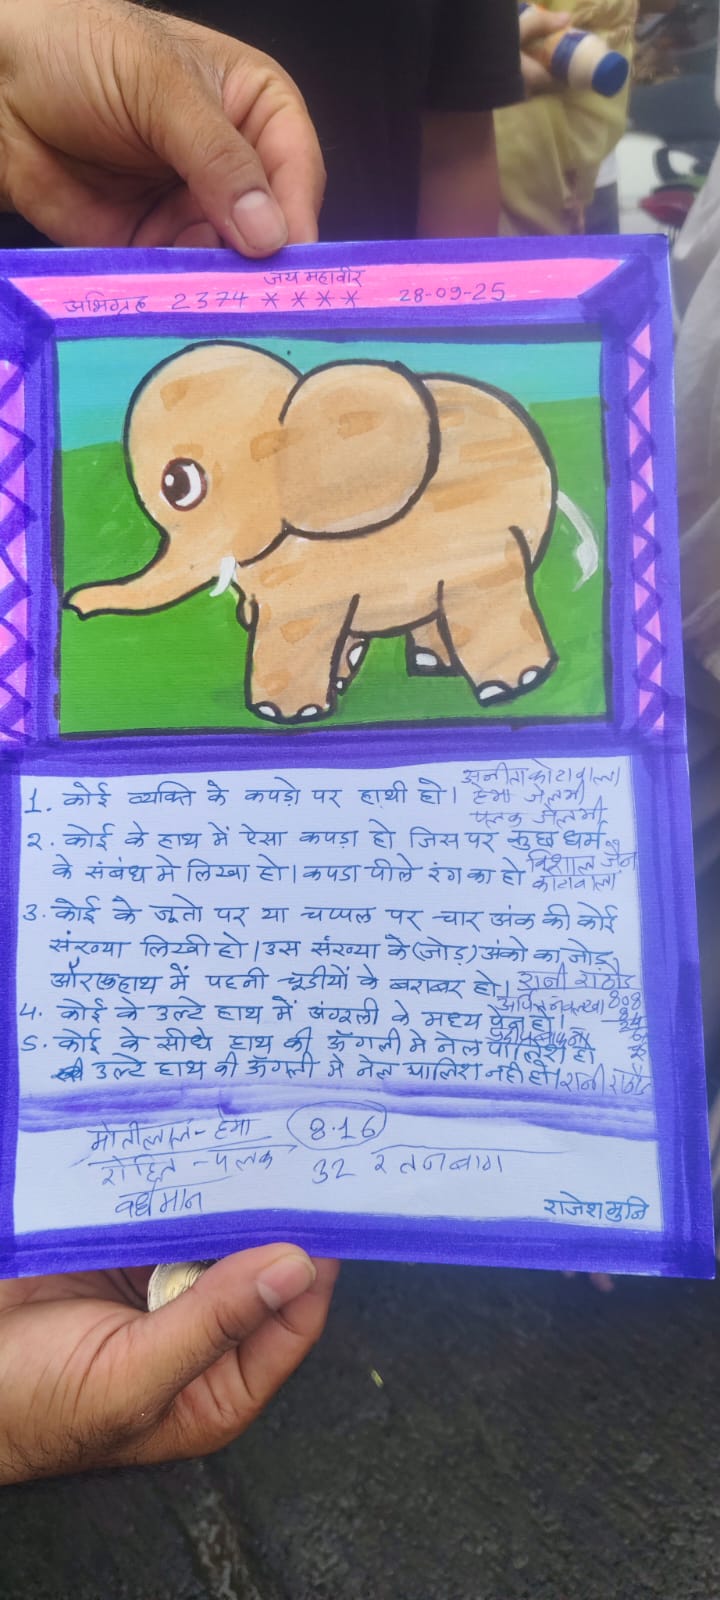 जय महावीर
अभिग्रह 2374 **** 28-09-25
1. कोई व्यक्ति के कपड़ो पर हाथी हो। अनीता कोटावाला
हेमा जेलमी
पलक जेलमी
2. कोई के हाथ में ऐसा कपड़ा हो जिस पर कुछ धर्म
के संबंध मे लिखा हो। कपडा पीले रंग का हो विशाल जैन
कोटावाला
3. कोई के जूतो पर या चप्पल पर चार अंक की कोई
संख्या लिखी हो। उस संख्या के (जोड़) अंको का जोड़
और हाथ में पहनी चूडीयों के बराबर हो। रानी राठौड
4. कोई के उल्टे हाथ में अंगूली के मध्य पेन हो।
5. कोई के सीधे हाथ की ऊँगली मे नेल पॉलिश हो
उल्टे हाथ की ऊँगली मे नेल पालिश नही हो। रानी राठौड
मोतीलाल - हेमा 8.16
रोहित - पलक 32 रतनबाग
वर्धमान
राजेशमुनि